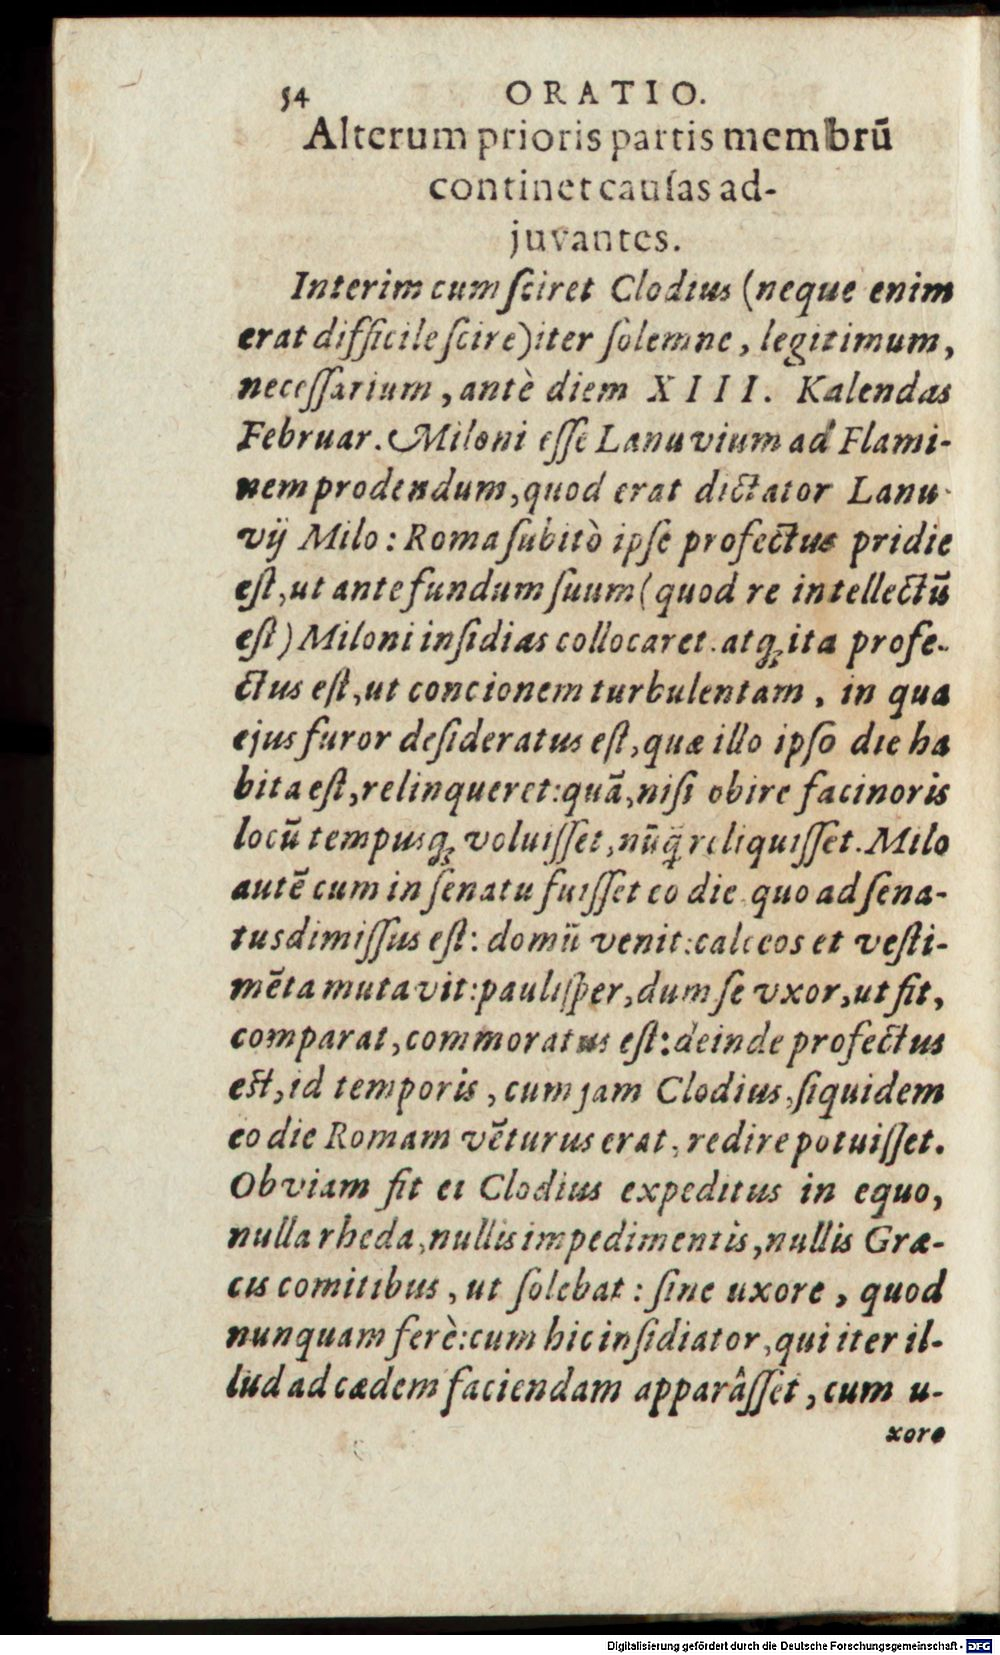 54 ORATIO.
Alterum prioris partis membrū
continet cauſas ad-
juvantes.
Interim cum ſciret Clodius (neque enim
erat difficile ſcire) iter ſolemne, legitimum,
neceſſarium, antè diem XIII. Kalendas
Februar. Miloni eſſe Lanuvium ad Flami-
nem prodendum, quod erat dictator Lanu-
vij Milo: Roma ſubitò ipſe profectus pridie
eſt, ut ante fundum ſuum (quod re intellectū
eſt) Miloni inſidias collocaret. atq; ita profe-
ctus eſt, ut concionem turbulentam, in qua
ejus furor deſideratus eſt, quæ illo ipſo die ha
bita eſt, relinqueret: quā, niſi obire facinoris
locū tempusq; voluiſſet, nūq̃ reliquiſſet. Milo
autē cum in ſenatu fuiſſet eo die quo ad ſena-
tus dimiſſus eſt: domū venit: calceos et veſti-
mēta mutavit: pauliſper, dum ſe vxor, ut fit,
comparat, commoratus eſt: deinde profectus
eſt, id temporis, cum jam Clodius, ſiquidem
eo die Romam vēturus erat, redire potuiſſet.
Obviam fit ei Clodius expeditus in equo,
nulla rheda, nullis impedimentis, nullis Græ-
cis comitibus, ut ſolebat: ſine uxore, quod
nunquam ferè: cum hic inſidiator, qui iter il-
lud ad cædem faciendam apparâſſet, cum u-
xore
Digitalisierung gefördert durch die Deutsche Forschungsgemeinschaft - DFG